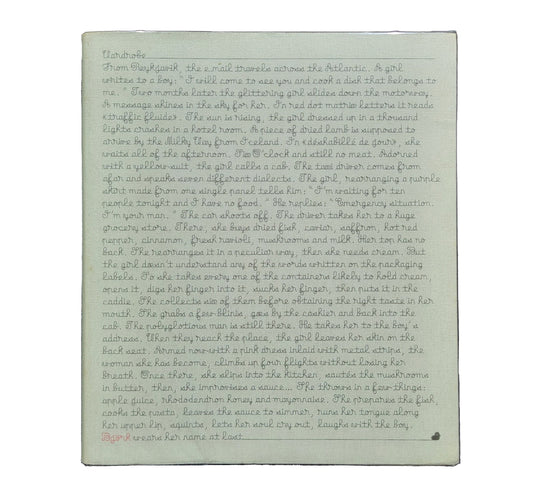 Wardrobe
From Reykjavik, the e.mail travels across the Atlantic. A girl
writes to a boy: "I will come to see you and cook a dish that belongs to
me." Two months later the glittering girl slides down the motorway.
A message shines in the sky for her. In red dot matrix letters it reads
«traffic fluide». The sun is rising, the girl dressed up in a thousand
lights crashes in a hotel room. A piece of dried lamb is supposed to
arrive by the Milky Way from Iceland. In «déshabillé de jour», she
waits all of the afternoon. Six O'clock and still no meat. Adorned
with a yellow suit, the girl calls a cab. The taxi driver comes from
afar and speaks seven different dialects. The girl, rearranging a purple
skirt made from one single panel tells him: "I'm waiting for ten
people tonight and I have no food." He replies: "Emergency situation.
I'm your man." The car shoots off. The driver takes her to a huge
grocery store. There, she buys dried fish, caviar, saffron, hot red
pepper, cinnamon, fresh ravioli, mushrooms and milk. Her top has no
back. She rearranges it in a peculiar way, then she needs cream. But
the girl doesn't understand any of the words written on the packaging
labels. So she takes every one of the containers likely to hold cream,
opens it, digs her finger into it, sucks her finger, then puts it in the
caddie. She collects six of them before obtaining the right taste in her
mouth. She grabs a few blinis, goes by the cashier and back into the
cab. The polyglotious man is still there. He takes her to the boy's
address. When they reach the place, the girl leaves her skin on the
back seat. Armed now with a pink dress inlaid with metal strips, the
woman she has become, climbs up four flights without losing her
breath. Once there, she slips into the kitchen, sautés the mushrooms
in butter, then, she improvises a sauce... She throws in a few things:
apple juice, rhododendron honey and mayonnaise. She prepares the fish,
cooks the pasta, leaves the sauce to simmer, runs her tongue along
her upper lip, squints, lets her soul cry out, laughs with the boy.
Björk wears her name at last